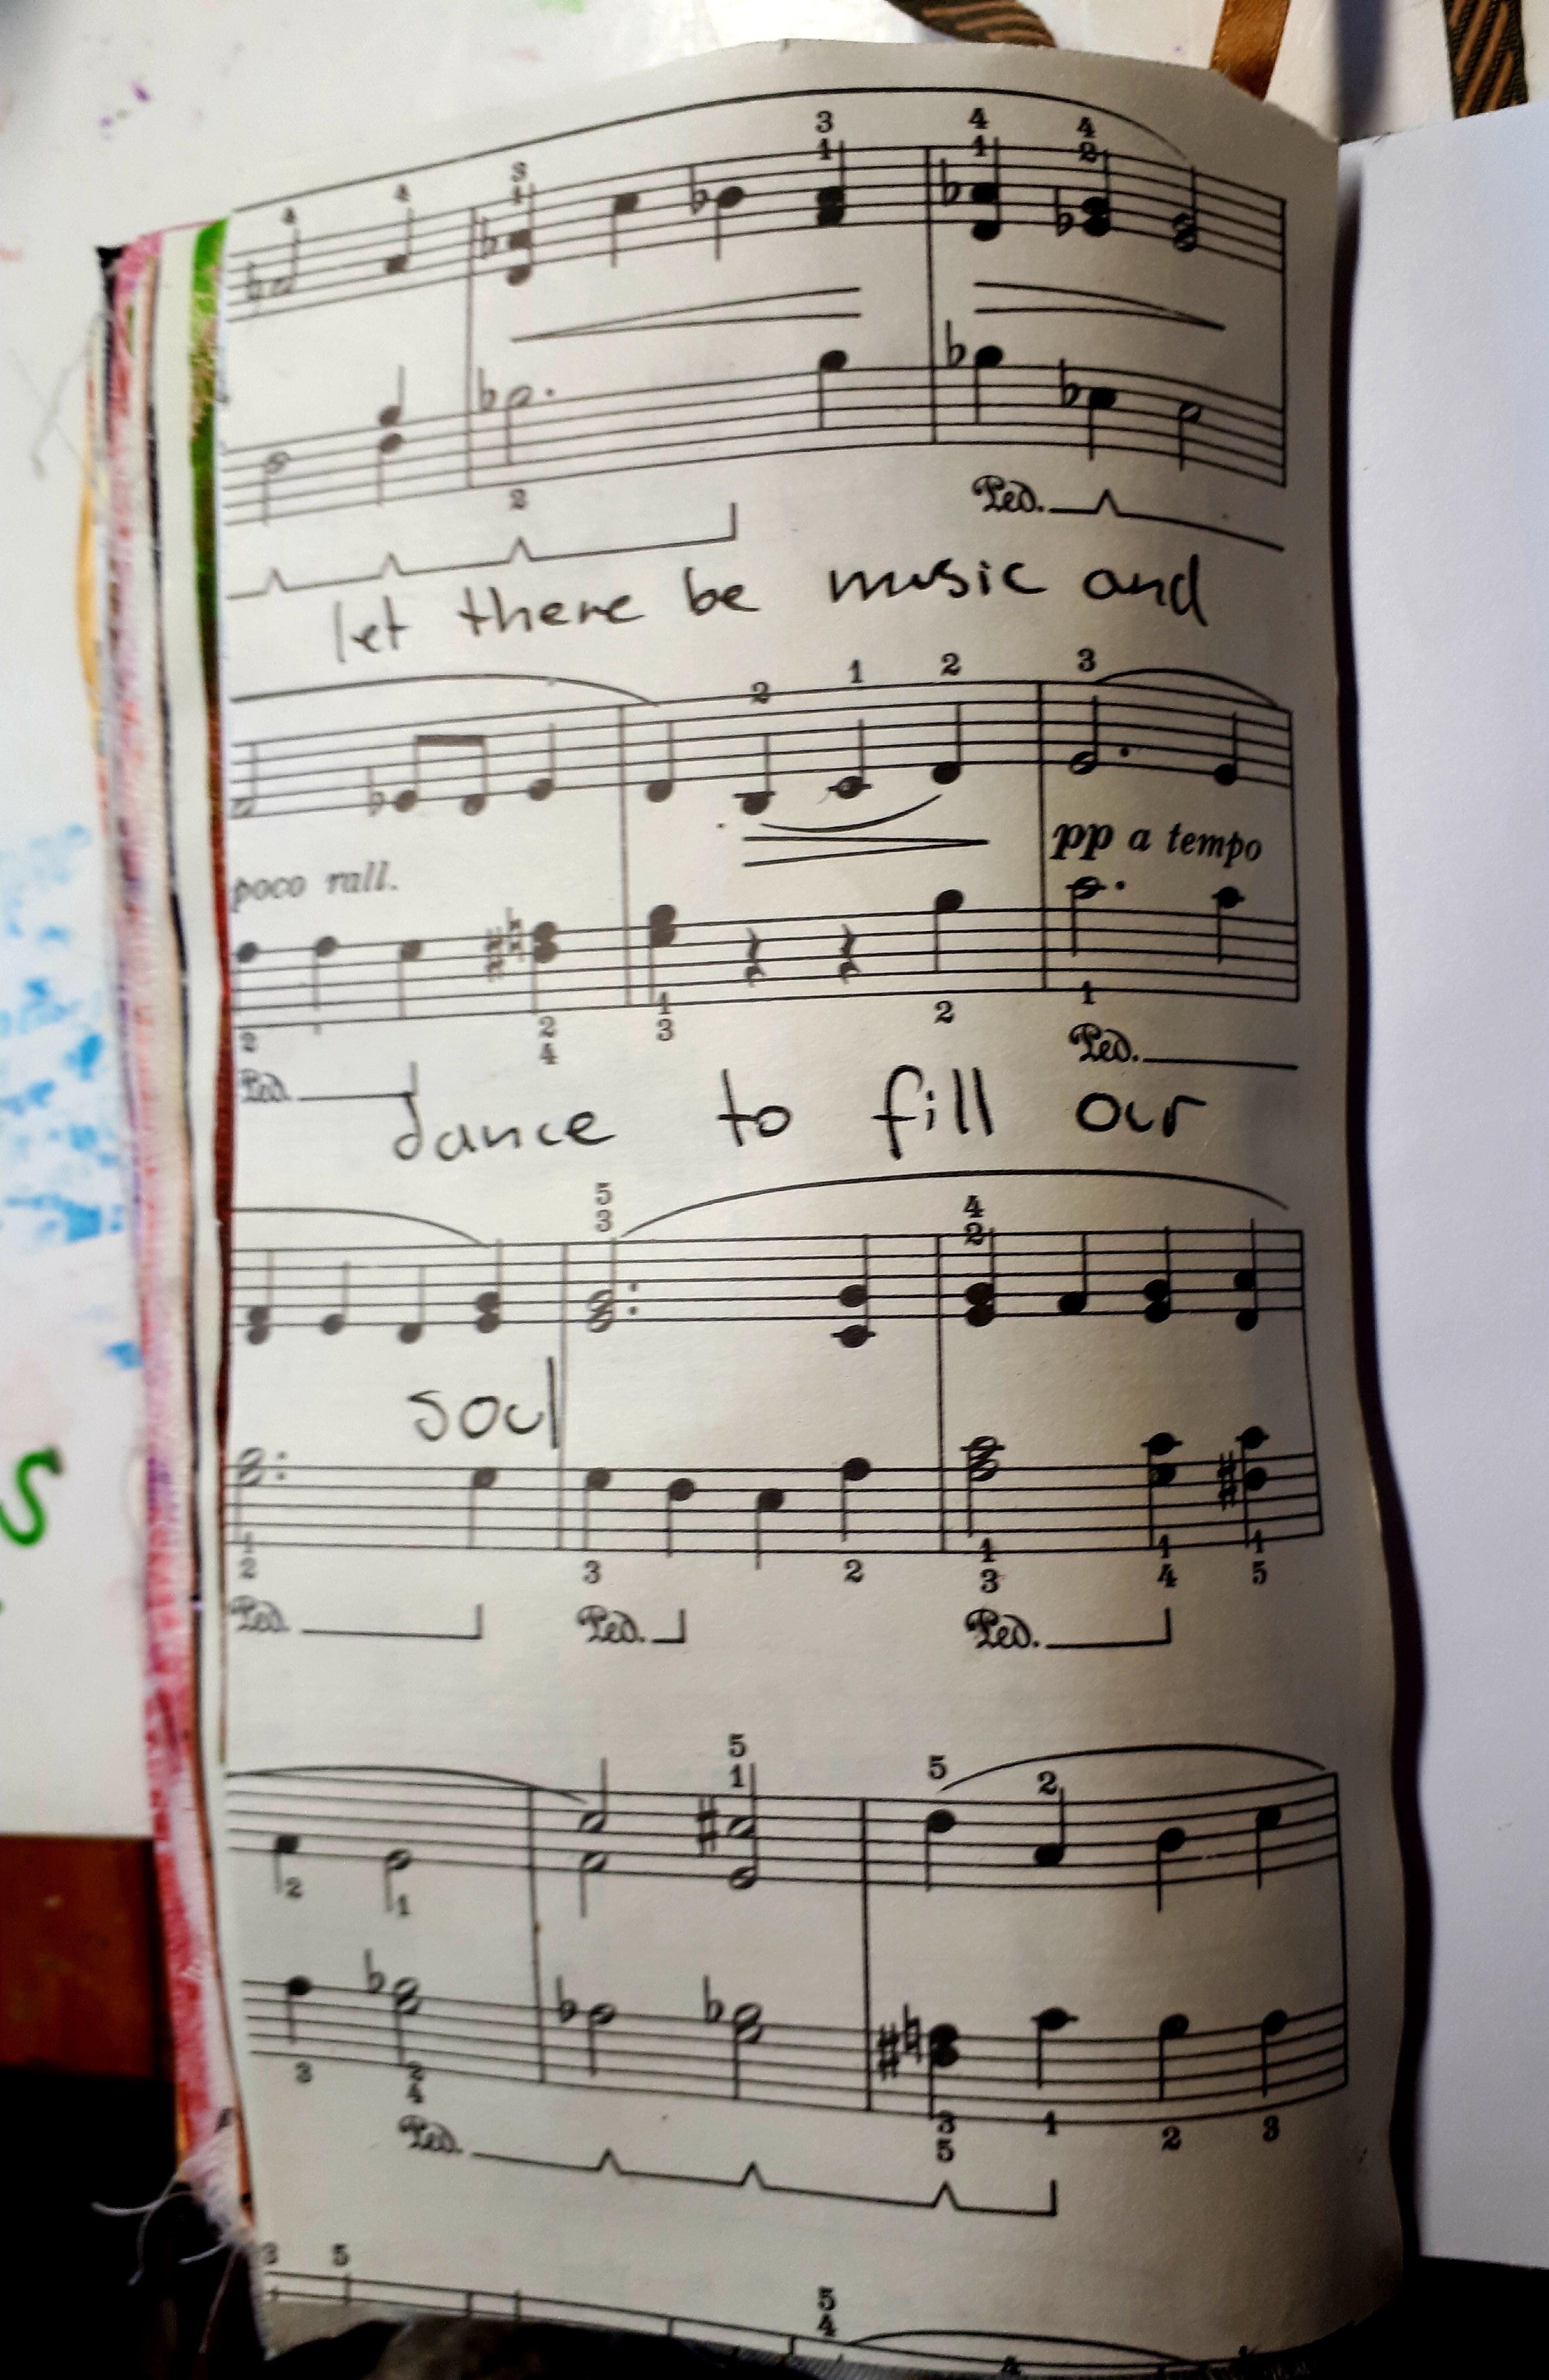 4 4 3 1 3 1 4 1 4 2
2
Ped.
let there be music and
2 1 2 3
poco rall. pp a tempo
2 2 4 1 3 2 1
Ped. Ped.
dance to fill our
5 3 4 2
soul
1 2 3 2 1 3 1 4 1 5
Ped. Ped. Ped.
5 1 5 2
2 1
3 2 4 3 5 1 2 3
Ped.
3 5 5 4